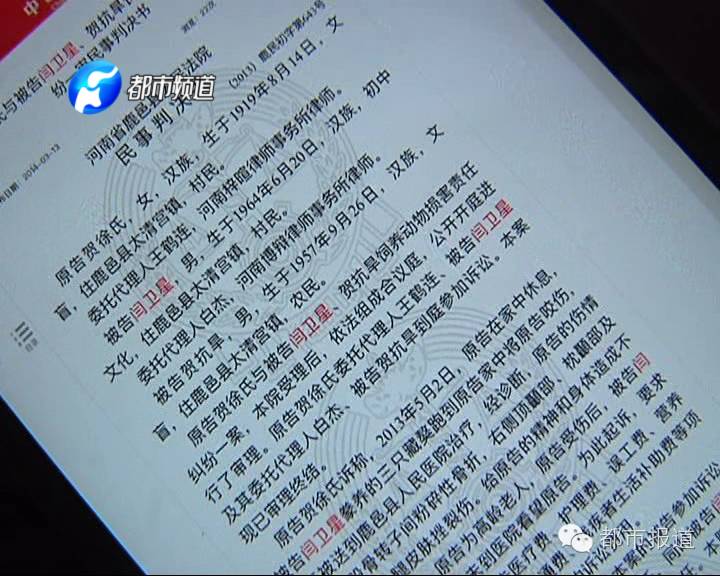 中
氏与被告闫卫星、贺抗旱
纷一审民事判决书
浏览：22次
布日期：2014-03-13
都市频道
河南省鹿邑 法院
民 事 判 决
（2013）鹿民初字第643号
原告贺徐氏，女，汉族，生于1919年8月14日，文
盲，住鹿邑县太清宫镇，村民。
委托代理人王鹤连，河南梓暄律师事务所律师。
被告闫卫星，男，生于1964年6月20日，汉族，初中
文化，住鹿邑县太清宫镇，村民。
委托代理人白杰，河南博辩律师事务所律师。
被告贺抗旱，男，生于1957年9月26日，汉族，文
盲，住鹿邑县太清宫镇，农民。
原告贺徐氏与被告闫卫星、贺抗旱饲养动物损害责任
纠纷一案，本院受理后，依法组成合议庭，公开开庭进
行了审理。原告贺徐氏委托代理人王鹤连、被告闫卫星
及其委托代理人白杰、被告贺抗旱到庭参加诉讼。本案
现已审理终结。
原告贺徐氏诉称，2013年3月2日，原告在家中休息，
被告闫卫星豢养的三只藏獒跑到原告家中将原告咬伤，
被送到鹿邑县人民医院治疗，经诊断，原告的伤情
股骨转子间粉碎性骨折，右侧顶颞部、枕颞部及
腿皮肤性裂伤。给原告的精神和身体造成不
原告为高龄老人，原告受伤后，被告闫
未到医院看望原告。为此起诉，要求
医疗费、护理费、误工费、营养
者生活补助费等项
参加诉讼
目录
都市报道